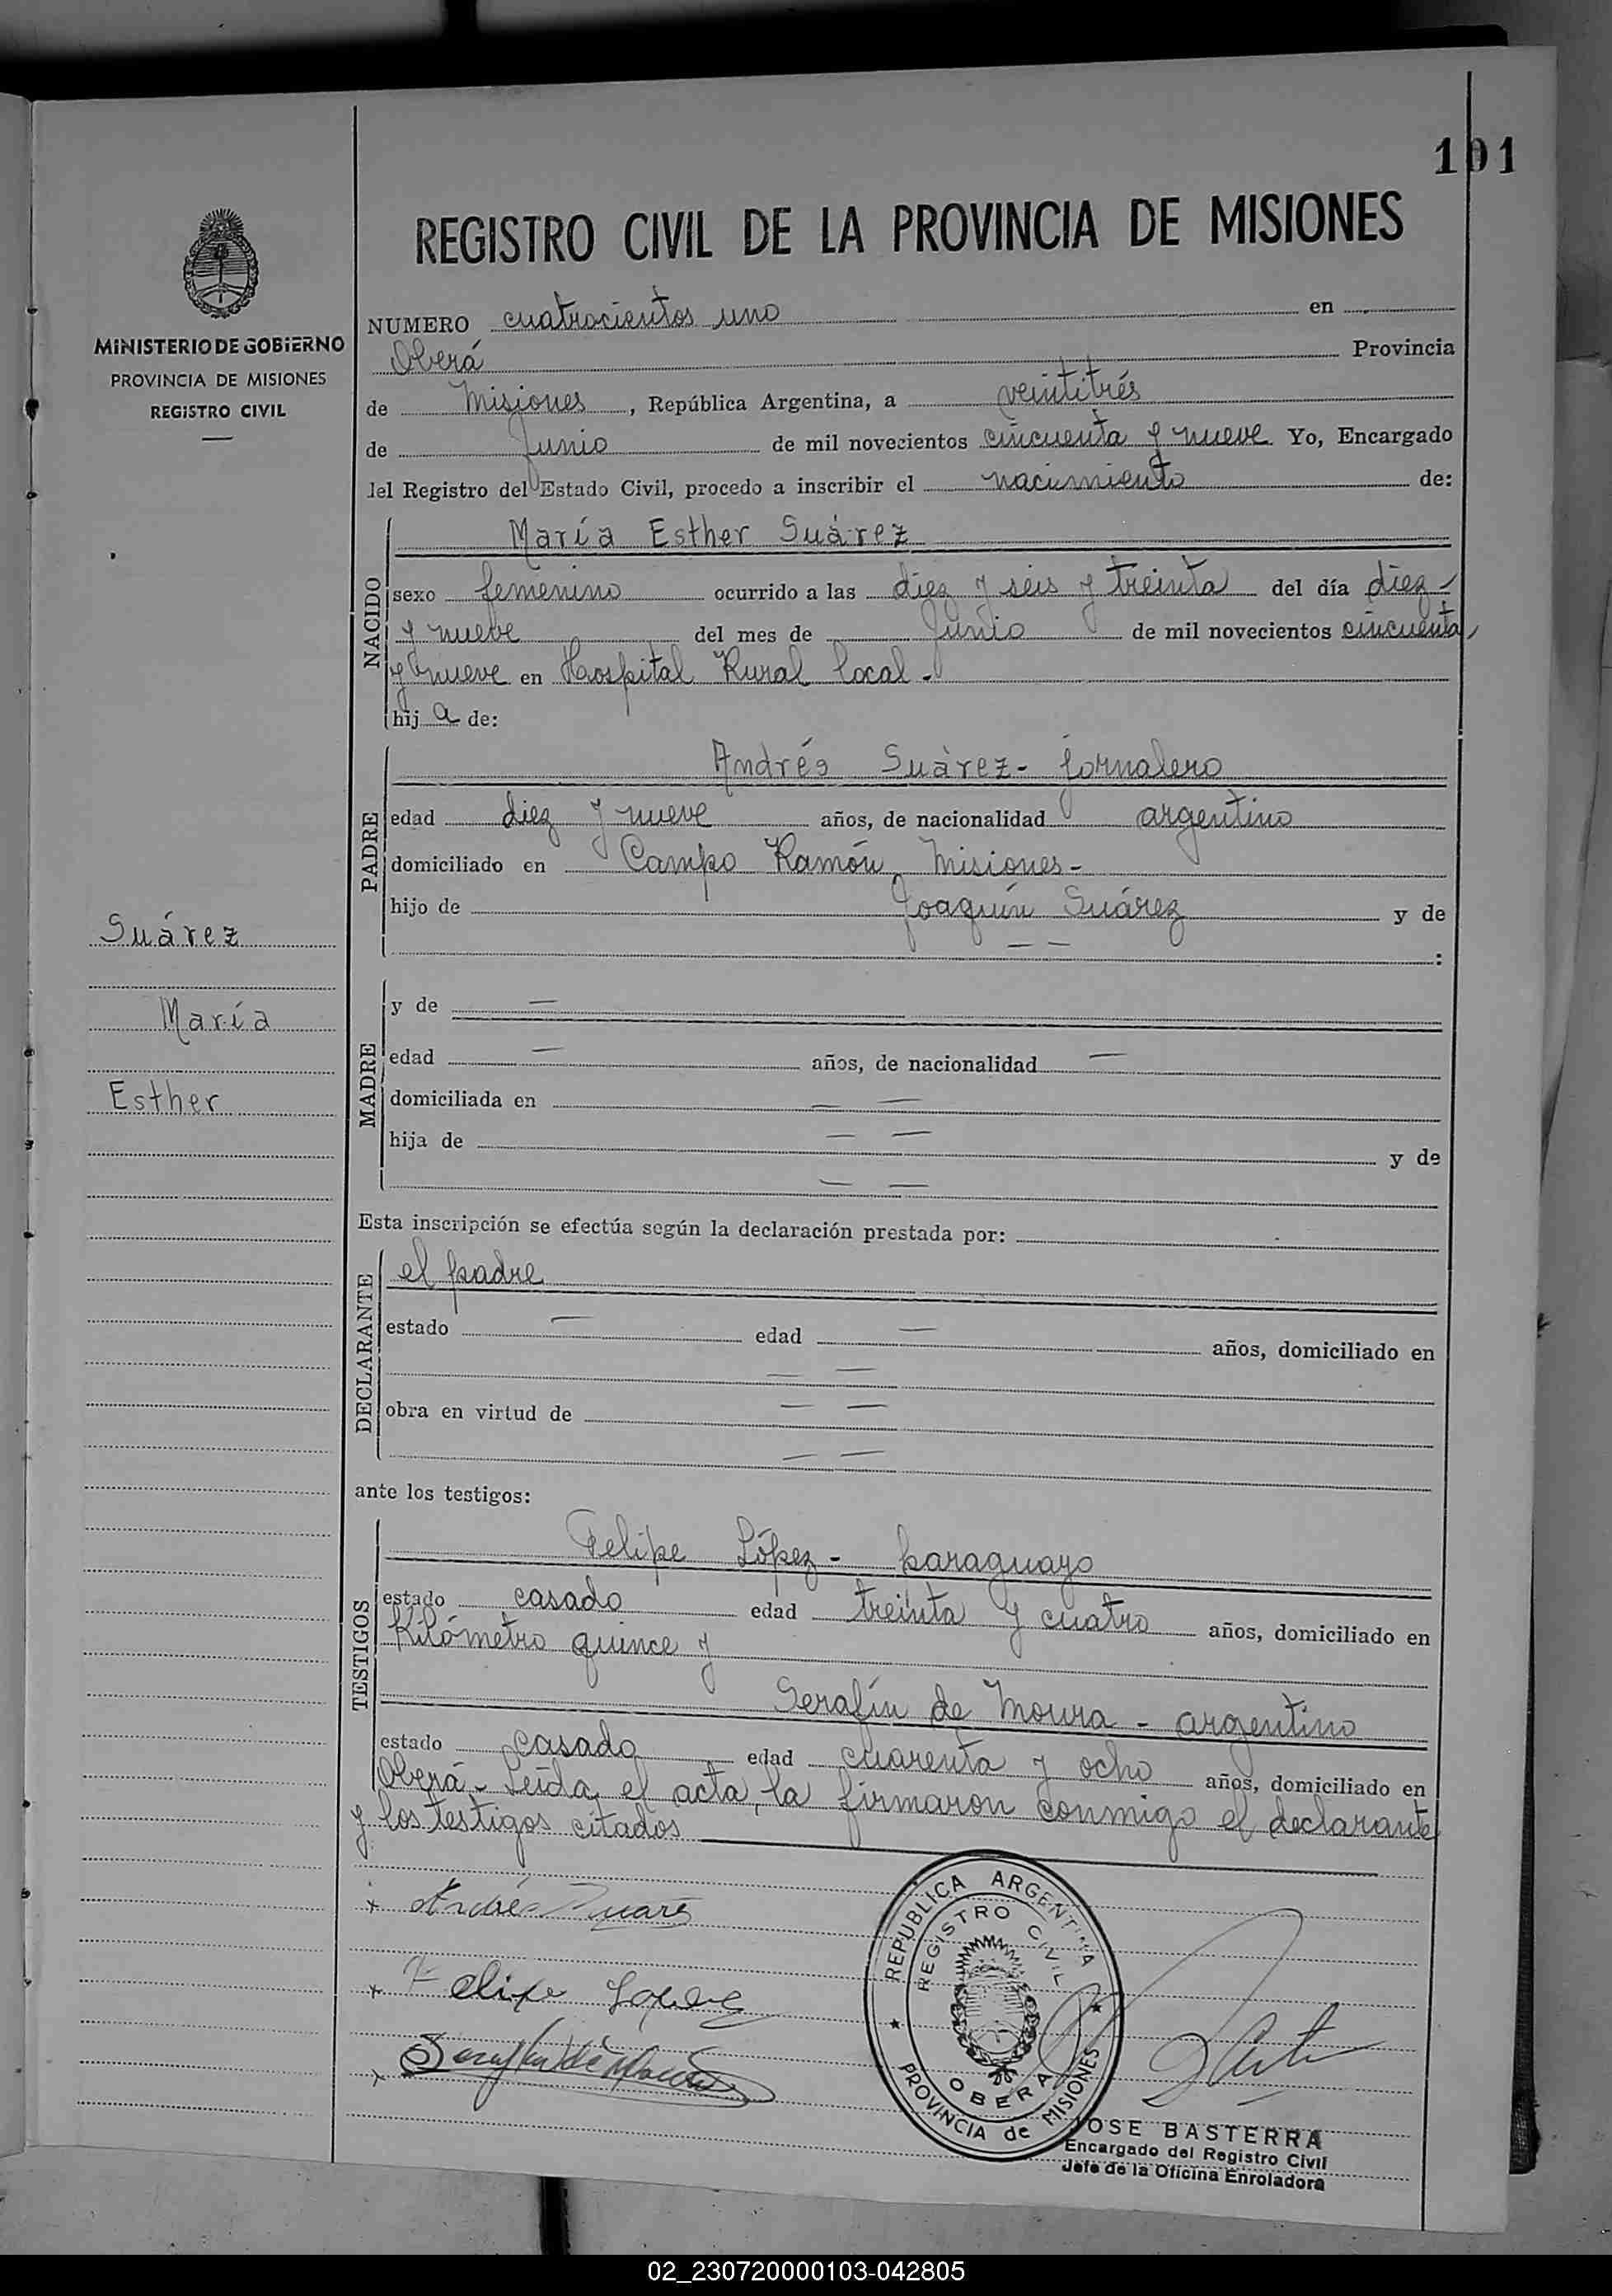 101
REGISTRO CIVIL DE LA PROVINCIA DE MISIONES
MINISTERIO DE GOBIERNO
PROVINCIA DE MISIONES
REGISTRO CIVIL
Suárez
María
Esther
NUMERO cuatrocientos uno en
Oberá Provincia
de Misiones, República Argentina, a veintitrés
de Junio de mil novecientos cincuenta y nueve Yo, Encargado
lel Registro del Estado Civil, procedo a inscribir el nacimiento de:
NACIDO
María Esther Suárez
sexo femenino ocurrido a las diez y seis y treinta del día diez
y nueve del mes de Junio de mil novecientos cincuenta
y nueve en Hospital Rural local.-
hij a de:
PADRE
Andrés Suàrez- jornalero
edad diez y nueve años, de nacionalidad argentino
domiciliado en Campo Ramón, Misiones-
hijo de Joaquín Suárez y de
— — :
MADRE
y de —
edad — años, de nacionalidad —
domiciliada en — —
hija de — — y de
— —
Esta inscripción se efectúa según la declaración prestada por:
DECLARANTE
el padre
estado — edad — años, domiciliado en
— —
obra en virtud de — —
— —
ante los testigos:
TESTIGOS
Felipe López- paraguayo
estado casado edad treinta y cuatro años, domiciliado en
Kilómetro quince y
Serafín de Moura - argentino
estado casado edad cuarenta y ocho años, domiciliado en
Oberá- Leída el acta, la firmaron conmigo el declarante
y los testigos citados
x Andrés Suares
x Felipe Lopez
x Serafin de Moura
REPUBLICA ARGENTINA
REGISTRO CIVIL
OBERA
PROVINCIA de MISIONES
JOSE BASTERRA
Encargado del Registro Civil
Jefe de la Oficina Enroladora
02_230720000103-042805